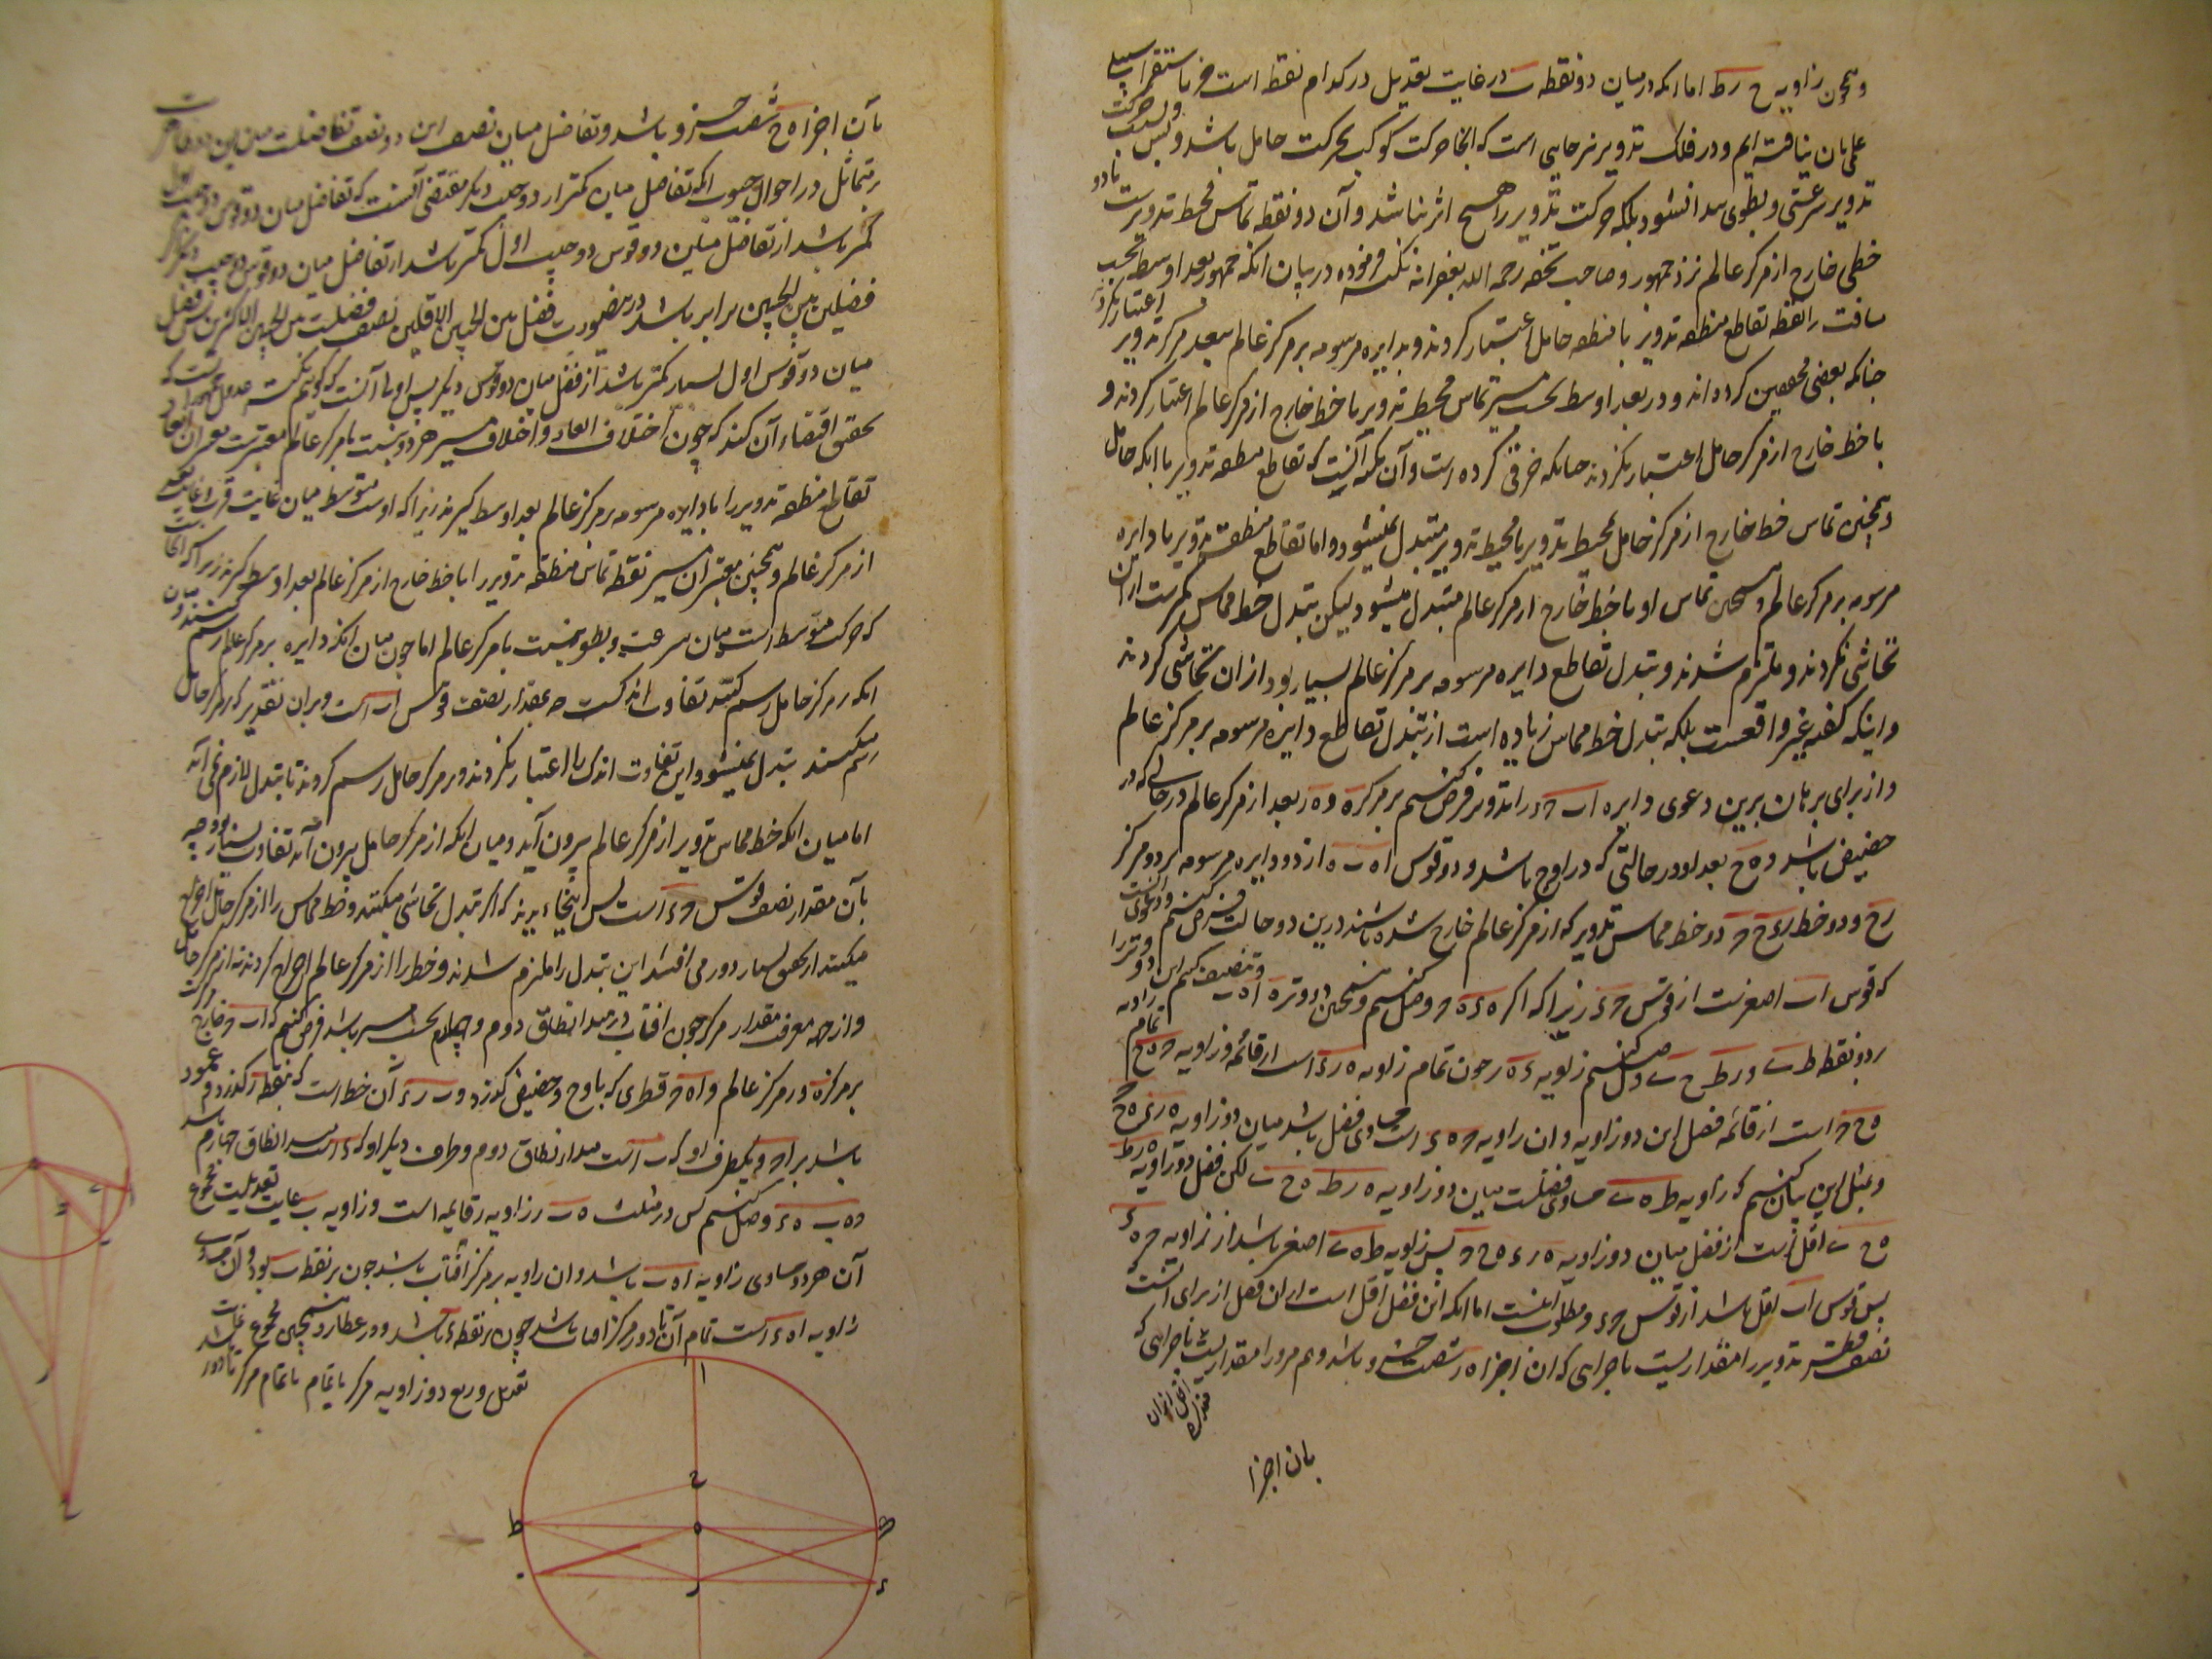 وهمچون زاویه ح ر ط اما آنکه در میان دو نقطه ب د غایت تعدیل در کدام نقطه است جز باستقرا سبیلی
علمی بان نیافته ایم و در فلک تدویر نیز جایی است که آنجا حرکت کوکب بحرکت حامل باشد و بس و بسبب حرکت
تدویر سرعتی و بطوی پیدا نشود بلکه حرکت تدویر را هیچ اثر نباشد و آن دو نقطه تماس محیط تدویر است با دو
خطی خارج از مرکز عالم نزد جمهور و صاحب تحفه رحمه الله بغفرانه نکته فرموده در بیان آنکه جمهور بعد اوسط بحسب
مسافت را نقطه تقاطع منطقه تدویر با منطقه حامل اعتبار کردند و بدایره مرسومه بر مرکز عالم ببعد مرکز تدویر اعتبار نکردند
چنانکه بعضی محققین کرده اند و در بعد اوسط بحسب مسیر تماس محیط تدویر با خط خارج از مرکز عالم اعتبار کردند و
با خط خارج از مرکز حامل اعتبار نکردند چنانکه خرقی کرده است و آن نکته آنست که تقاطع منطقه تدویر با آنکه حامل
و همچنین تماس خط خارج از مرکز حامل بمحیط تدویر با محیط تدویر متبدل نمیشود و اما تقاطع منطقه تدویر با دایره
مرسومه بر مرکز عالم و همچنین تماس او با خط خارج از مرکز عالم متبدل میشود لیکن تبدل خط مماس کمترست ازین
تحاشی نکردند و ملتزم شدند و تبدل تقاطع دایره مرسومه بر مرکز عالم بسیار بود از ان تحاشی کردند
و اینکه گفته غیر واقعست بلکه تبدل خط مماس زیاده است از تبدل تقاطع دایره مرسومه بر مرکز عالم
و از برای برهان برین دعوی دایره ا ب ح د را تدویر فرض کنیم بر مرکز ه و ه ر بعد از مرکز عالم در حالتی که در
حضیض باشد و ه ح بعد او در حالتی که در اوج باشد و دو قوس ا ه ب ه از دو دایره مرسومه بر دو مرکز
ر ح و دو خط ر ء ح ح دو خط مماس تدویر که از مرکز عالم خارج شده باشند درین دو حالت فرض کنیم و دعوی آنست
که قوس ا ب اصغرست از قوس ح ء زیرا که اگر ه ء ه ح وصل کنیم و همچنین دو وتر ه ا ه ب و تنصیف کنیم این دو وتر را
بر دو نقطه ط ب و ر ط ح ب وصل کنیم زاویه ء ه ر چون تمام زاویه ه ر ء است از قائمه و زاویه ح ه ح تمام زاویه
ه ح ح است از قائمه فضل این دو زاویه و ان زاویه ح ه ء است مساوی فضل باشد میان دو زاویه ه ر ء ه ح ح
و بمثل این بیان کنیم که زاویه ط ه ب مساوی فضلست میان دو زاویه ه ر ط ه ح ب لکن فضل دو زاویه ه ر ط
ه ح ب اقل است از فضل میان دو زاویه ه ر ء ه ح ح پس زاویه ط ه ب اصغر باشد از زاویه ح ه ء
پس قوس ا ب اقل باشد از قوس ح ء و مطلوب اینست اما آنکه این فضل اقل است از ان فضل از برای آنست
نصف قطر تدویر را مقداریست باجزایی که ان اجزا ه ر شصت جزو باشد و هم مر او را مقداریست باجزایی که
مقدار ه اقل از ان
بان اجزا
بآن اجزا ه ح شصت جزو باشد و تفاضل میان نصف این دو نصف تفاضلست میان این دو
بر تماثل در احوال جیوب آنکه تفاضل میان کمتر از دو جیب دیگر مقتضی آنست که تفاضل میان دو قوس دو جیب اول
کمتر باشد از تفاضل میان دو قوس دو جیب اول کمتر باشد از تفاضل میان دو قوس دو جیب دیگر
فضلین بین الجیبین برابر باشد درینصورت فضل بین الجیبین الاقلین نصف فضلست بین الجیبین الاکثرین پس فضل
میان دو قوس اول بسیار کمتر باشد از فضل میان دو قوس دیگر پس اولی آنست که گوییم نکته عدول جمهور آنست که
تحقیق اقتضاء آن کند که چون اختلاف ابعاد و اختلاف مسیر هر دو بنسبت با مرکز عالم معتبرست معتبران ابعاد
تقاطع منطقه تدویر را با دایره مرسومه بر مرکز عالم بعد اوسط گیرند زیرا که اوست متوسط میان غایت قرب و غایت بعد
از مرکز عالم و همچنین معتبران مسیر نقطه تماس منطقه تدویر را با خط خارج از مرکز عالم بعد اوسط گیرند زیرا که آنجاست
که حرکت متوسط است میان سرعت و بطو بنسبت با مرکز عالم اما چون میان آنکه دایره بر مرکز عالم رسم کنند و میان
آنکه بر مرکز حامل رسم کنند تفاوت اندکست چه بمقدار نصف قوس ا ب است و بران تقدیر که بر مرکز حامل
رسم میکنند تبدل نمیشود این تفاوت اندک را اعتبار نکردند و بر مرکز حامل رسم کردند تا تبدل لازم نمی آید
اما میان آنکه خط مماس تدویر از مرکز عالم بیرون آید و میان آنکه از مرکز حامل بیرون آید تفاوت بسیار بود چه
بآن مقدار نصف قوس ح ء است پس اینجا بدیدند که اگر تبدل تحاشی میکنند و خط مماس را از مرکز حامل اخراج
میکنند از تحقیق بسیار دور می افتند این تبدل را ملتزم شدند و خط را از مرکز عالم اخراج کردند نه از مرکز حامل
و از جهه معرفت مقدار مرکز چون افتاب در مبدا نطاق دوم و چهارم بحسب مسیر باشد فرض کنیم که ا ب ح خارج مرکزست
بر مرکز ه و ر مرکز عالم و ا ه ح قطری که باوج و حضیض گذرد و ب ر ء آن خط است که بنقطه ر گذرد و عمود
باشد بر ا ح و یکطرف او که ب است مبدا نطاق دوم و طرف دیگر او که ء است مبدا نطاق چهارم باشد
و ه ب ه ء وصل کنیم پس در مثلث ه ب ر زاویه ر قایمه است و زاویه ب غایت تعدیلست مجموع
آن هر دو مساوی زاویه ا ه ب باشد و ان زاویه بر مرکز افتاب باشد چون بر نقطه ب بود و آن
زاویه ا ه ء است تمام آن تا دور مرکز افتاب باشد چون بر نقطه ء باشد و در عطارد همچنین مجموع غایت
تعدیل و ربع دو زاویه مرکز یا تمام با تمام مرکز تا دور باشد
ا
ح
ط
ه
ب
ر
ء